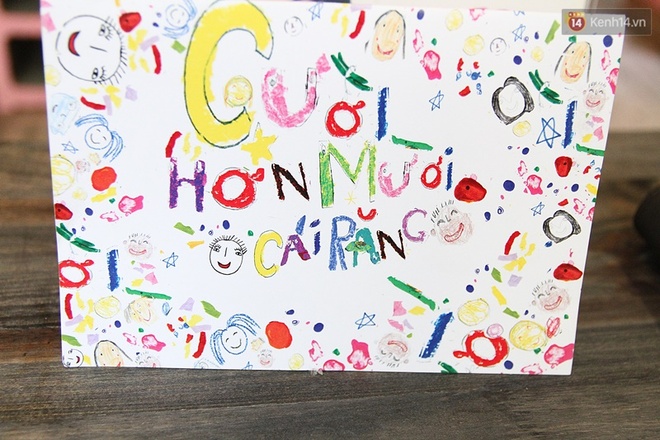 14 Kenh14.vn
CƯỜI
HƠN MƯƠI
CÁI RĂNG